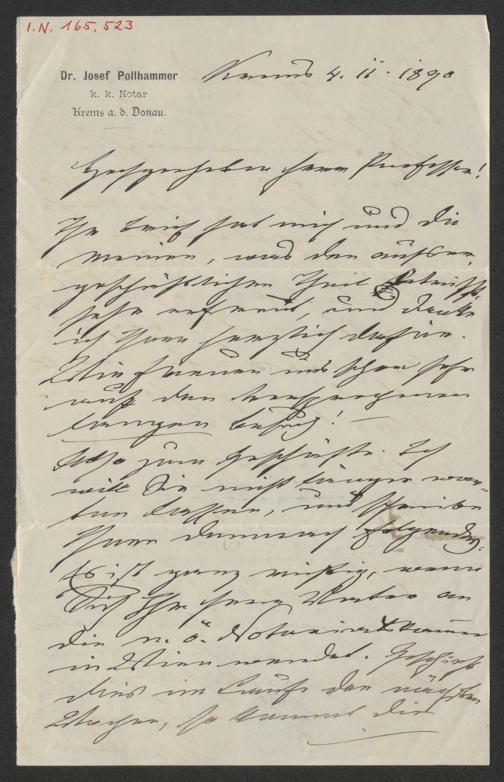 I.N. 165.523
Dr. Josef Pollhammer
k. k. Notar
Krems a. d. Donau.
Krems 4. II. 1890
Hochverehrter Herr Professor!
Ihr Brief hat mich und die
Meinen, was den außer-
geschäftlichen Theil betrifft
sehr erfreut, und danke
ich Ihnen herzlich dafür.
Wir freuen uns schon sehr
auf den versprochenen
langen Besuch! —
Also zum Geschäfte. Ich
will Sie nicht länger war-
ten lassen, und schreibe
Ihnen demnach Folgendes:
Es ist ganz richtig, wenn
Sich Ihr Herr Vater an
die n. ö. Notariatskammer
in Wien wendet. Geschieht
dies im Laufe der nächsten
Wochen, so kommt die